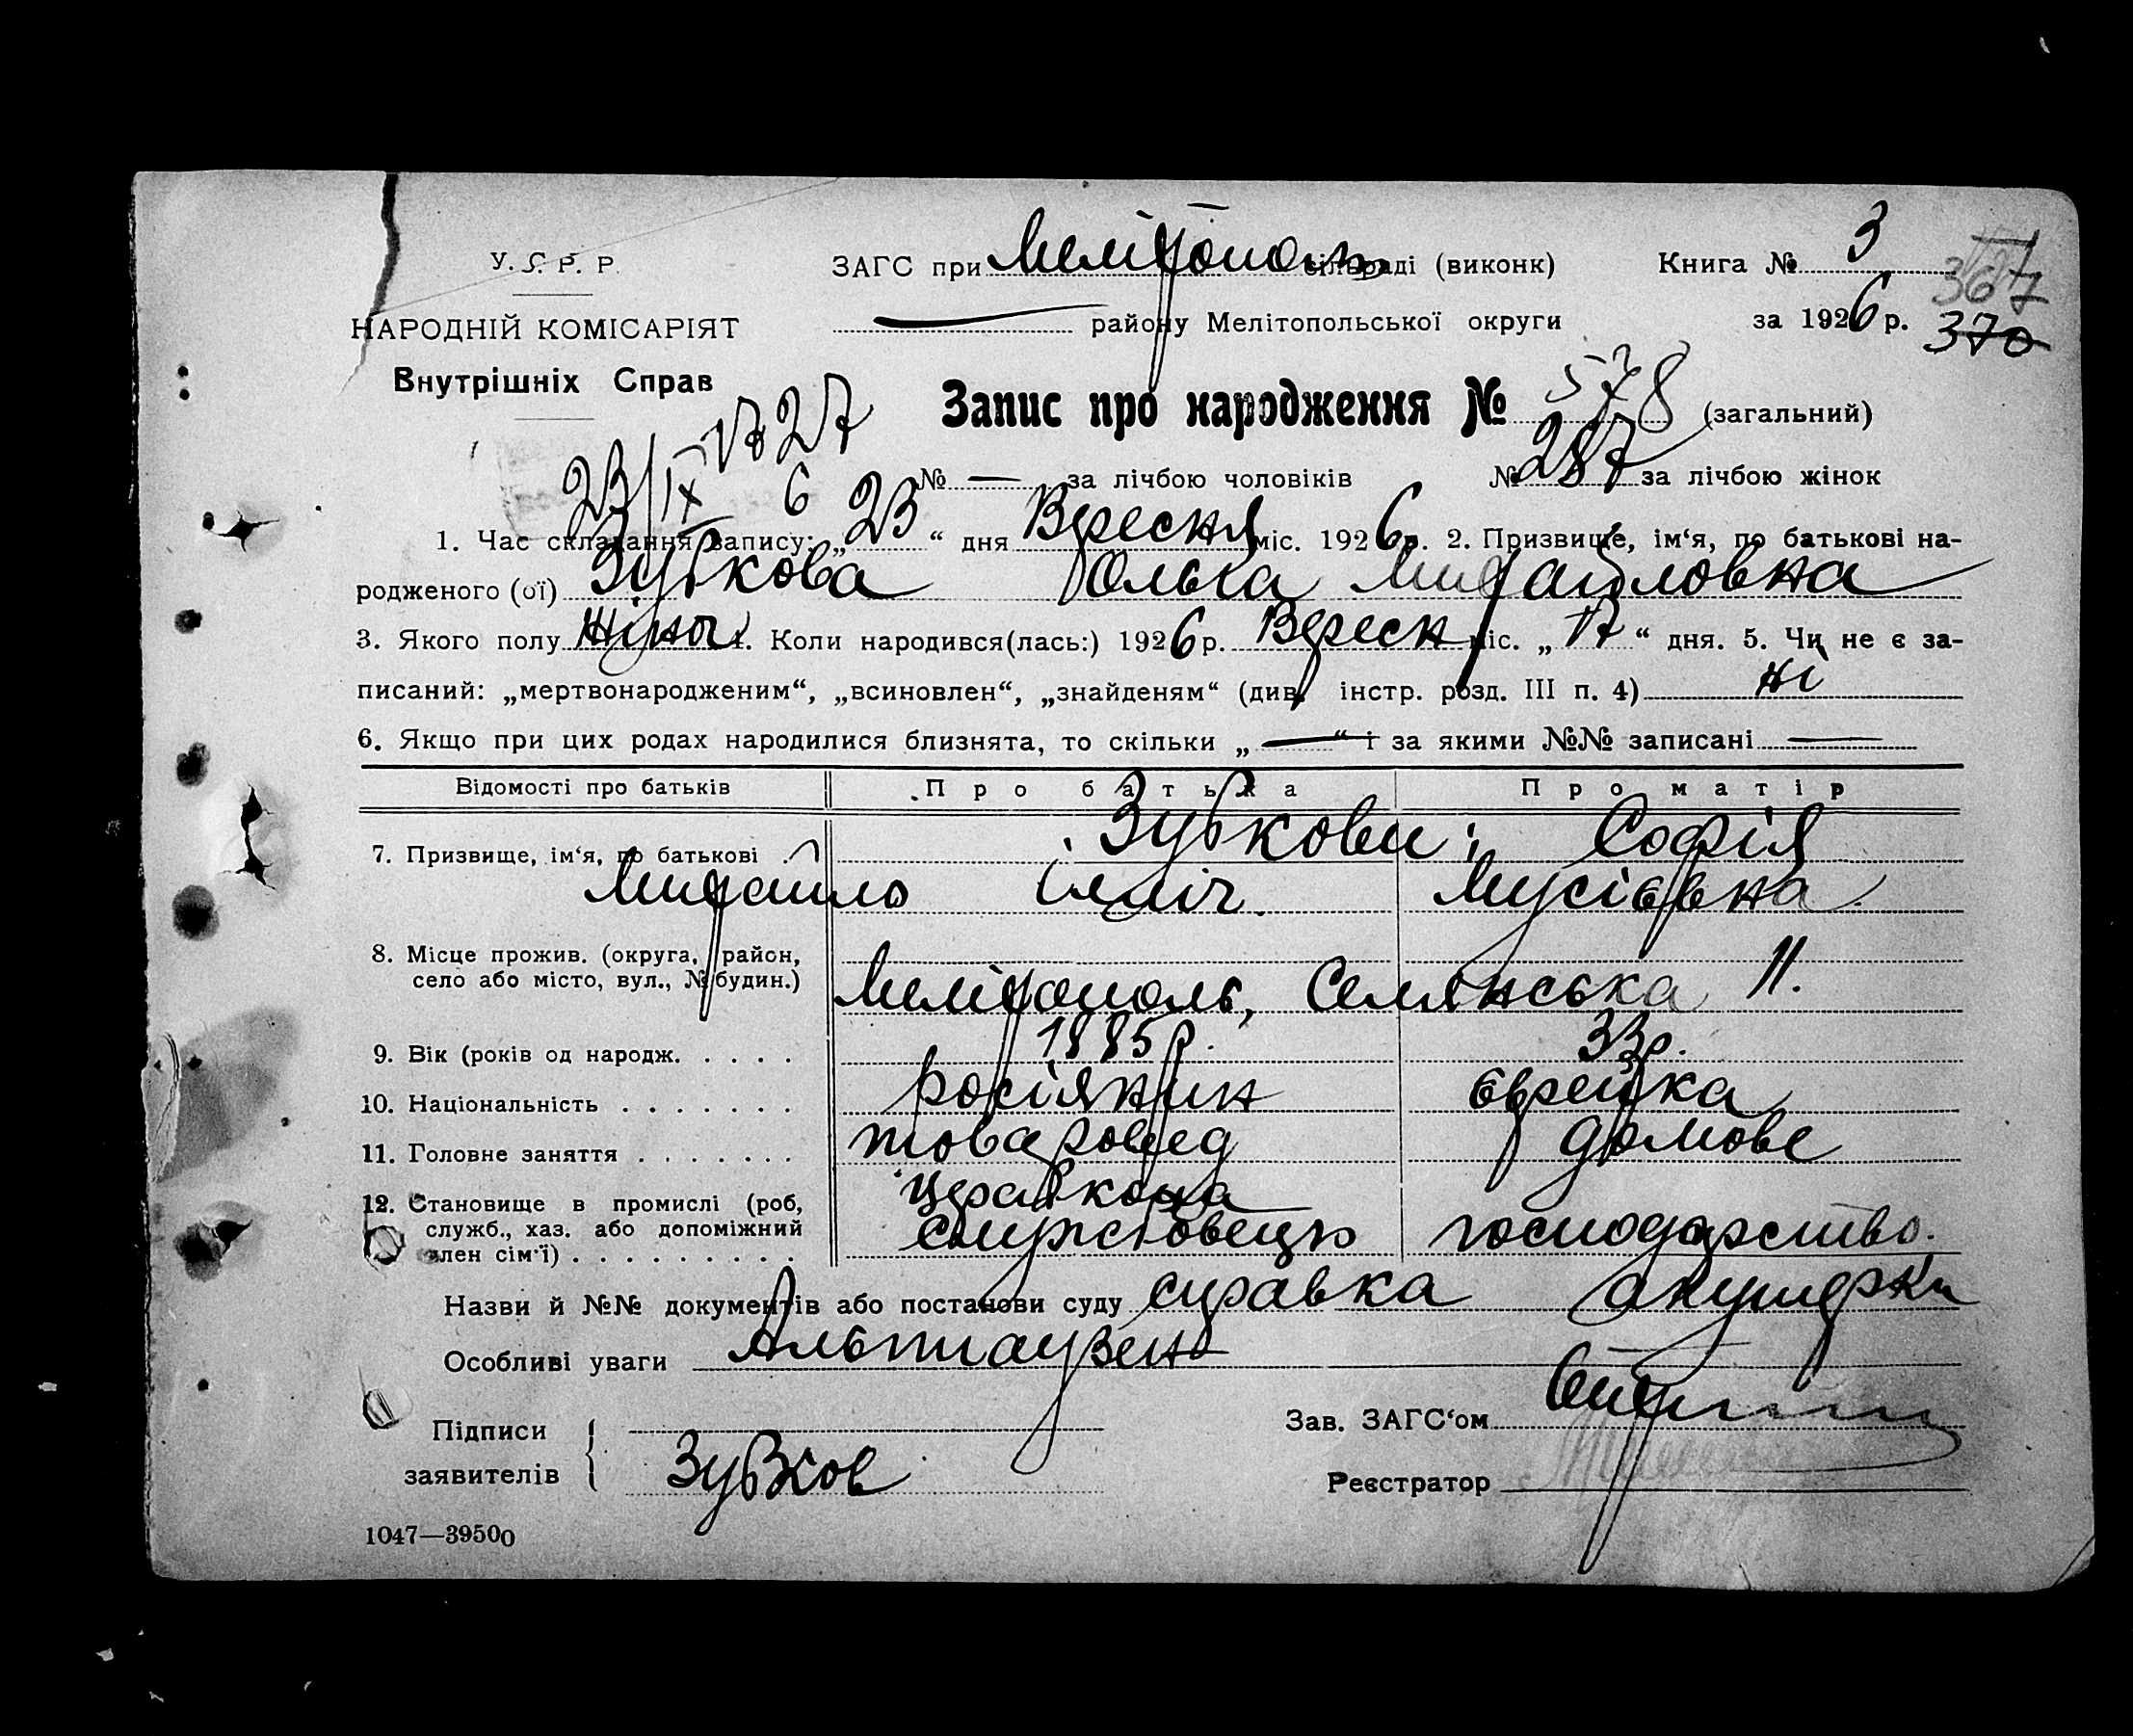 У. С. Р. Р.
НАРОДНІЙ КОМІСАРІЯТ
Внутрішніх Справ
ЗАГС при Мелітополь сільраді (виконк)
Книга № 3
району Мелітопольської округи
за 1926 р.
367
370
Запис про народження № 578 (загальний)
№ — за лічбою чоловіків № 287 за лічбою жінок
23/IX
1. Час складання запису: „23“ дня Вересня міс. 1926 р. 2. Призвище, ім‘я, по батькові на-
родженого (ої) Зубкова Ольга Михайловна
3. Якого полу Жіноч 4. Коли народився(лась:) 1926 р. Вересн міс. „17“ дня. 5. Чи не є за-
писаний: „мертвонародженим“, „всиновлен“, „знайденям“ (див. інстр. розд. III п. 4) ні
6. Якщо при цих родах народилися близнята, то скільки „—“ і за якими №№ записані —
Відомості про батьків Про батька Про матір
7. Призвище, ім‘я, по батькові Зубкови: Софія
Михайло Ілліч. Мусієвна.
8. Місце прожив. (округа, район,
село або місто, вул., № будин.) Мелітополь, Селянська 11.
9. Вік (років од народж. 1885 р. 33 р.
10. Національність росіянин єврейка
11. Головне заняття товаровед домове
12. Становище в промислі (роб,
служб., хаз. або допоміжний
член сім‘ї) службовець господарство.
Назви й №№ документів або постанови суду справка акушерки
Особливі уваги Альтаузен
Підписи
заявителів
Зубков
Зав. ЗАГС‘ом
Реєстратор
1047—39500